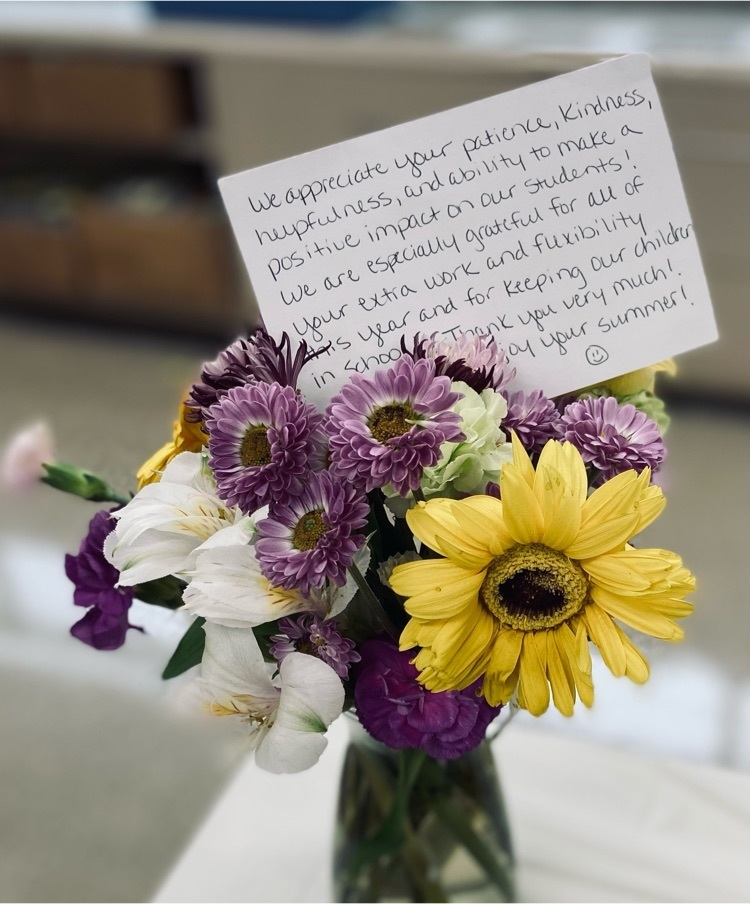 We appreciate your patience, kindness,
helpfulness, and ability to make a
positive impact on our students!
We are especially grateful for all of
your extra work and flexibility
year and for keeping our children
in Thank you very much!
your summer!